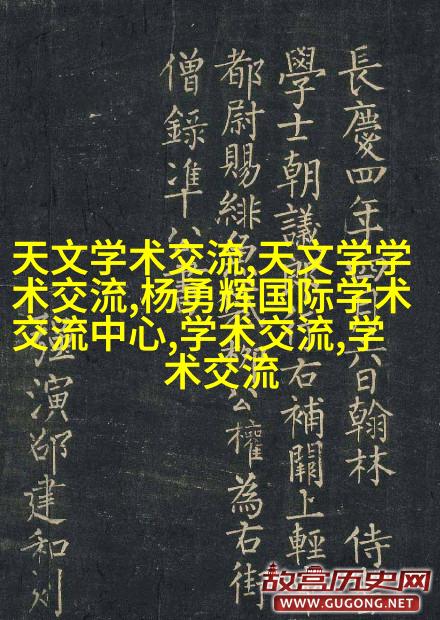 長慶四年六日翰林侍
學士朝議右補闕上輕
都尉賜緋公權為右街
僧錄准公
強演邵建和刻
天文学术交流,天文学学
术交流,杨勇辉国际学术
交流中心,学术交流,学
术交流
故宫历史网
WWW.GUGONG.NET